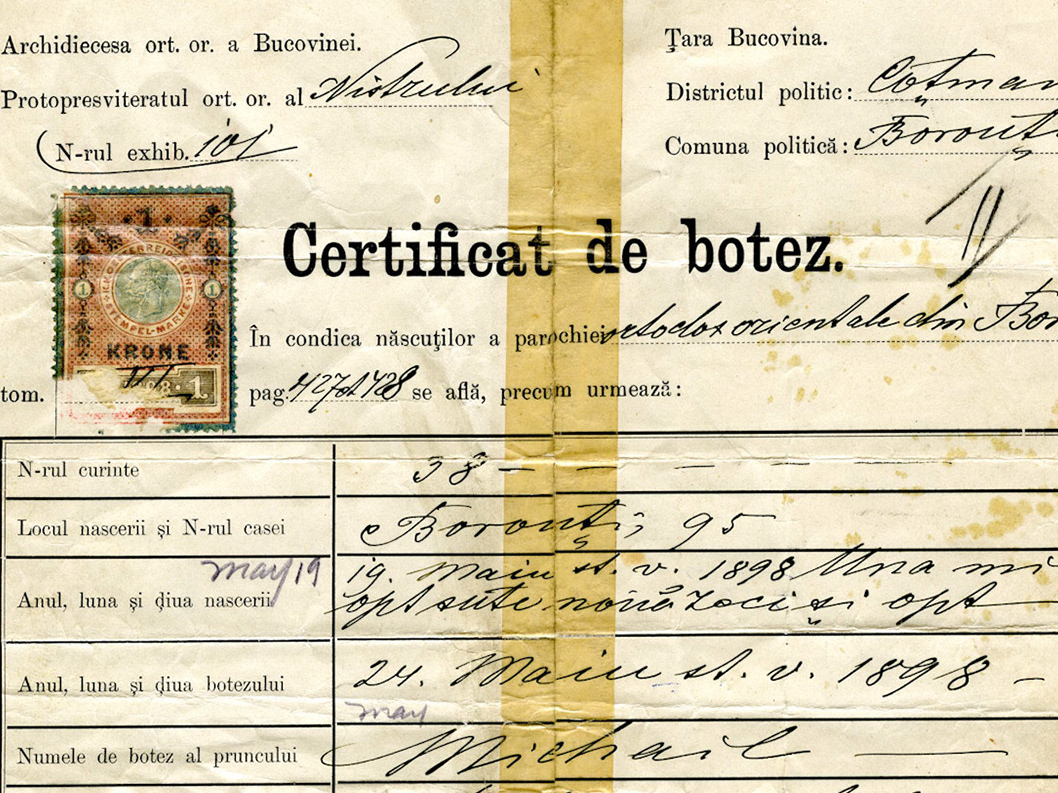 Archidiecesa ort. or. a Bucovinei.
Țara Bucovina.
Protopresviteratul ort. or. al Nistrului
Districtul politic: Coțman
N-rul exhib. 101
Comuna politică: Borouț
1
KRONE
STEMPEL-MARKE
1 1
1
Certificat de botez.
În condica născuților a parochiei ortodox orientale din Bor
tom. VI pag. 427 et 428 se află, precum urmează:
N-rul curinte 38 – – – – –
Locul nascerii și N-rul casei Borouți, 95
may 19
Anul, luna și ḑiua nascerii 19. Maiu st. v. 1898 Una mi
opt sute nouă zeci și opt —
Anul, luna și ḑiua botezului 24. Maiu st. v. 1898 –
may
Numele de botez al pruncului Michail —